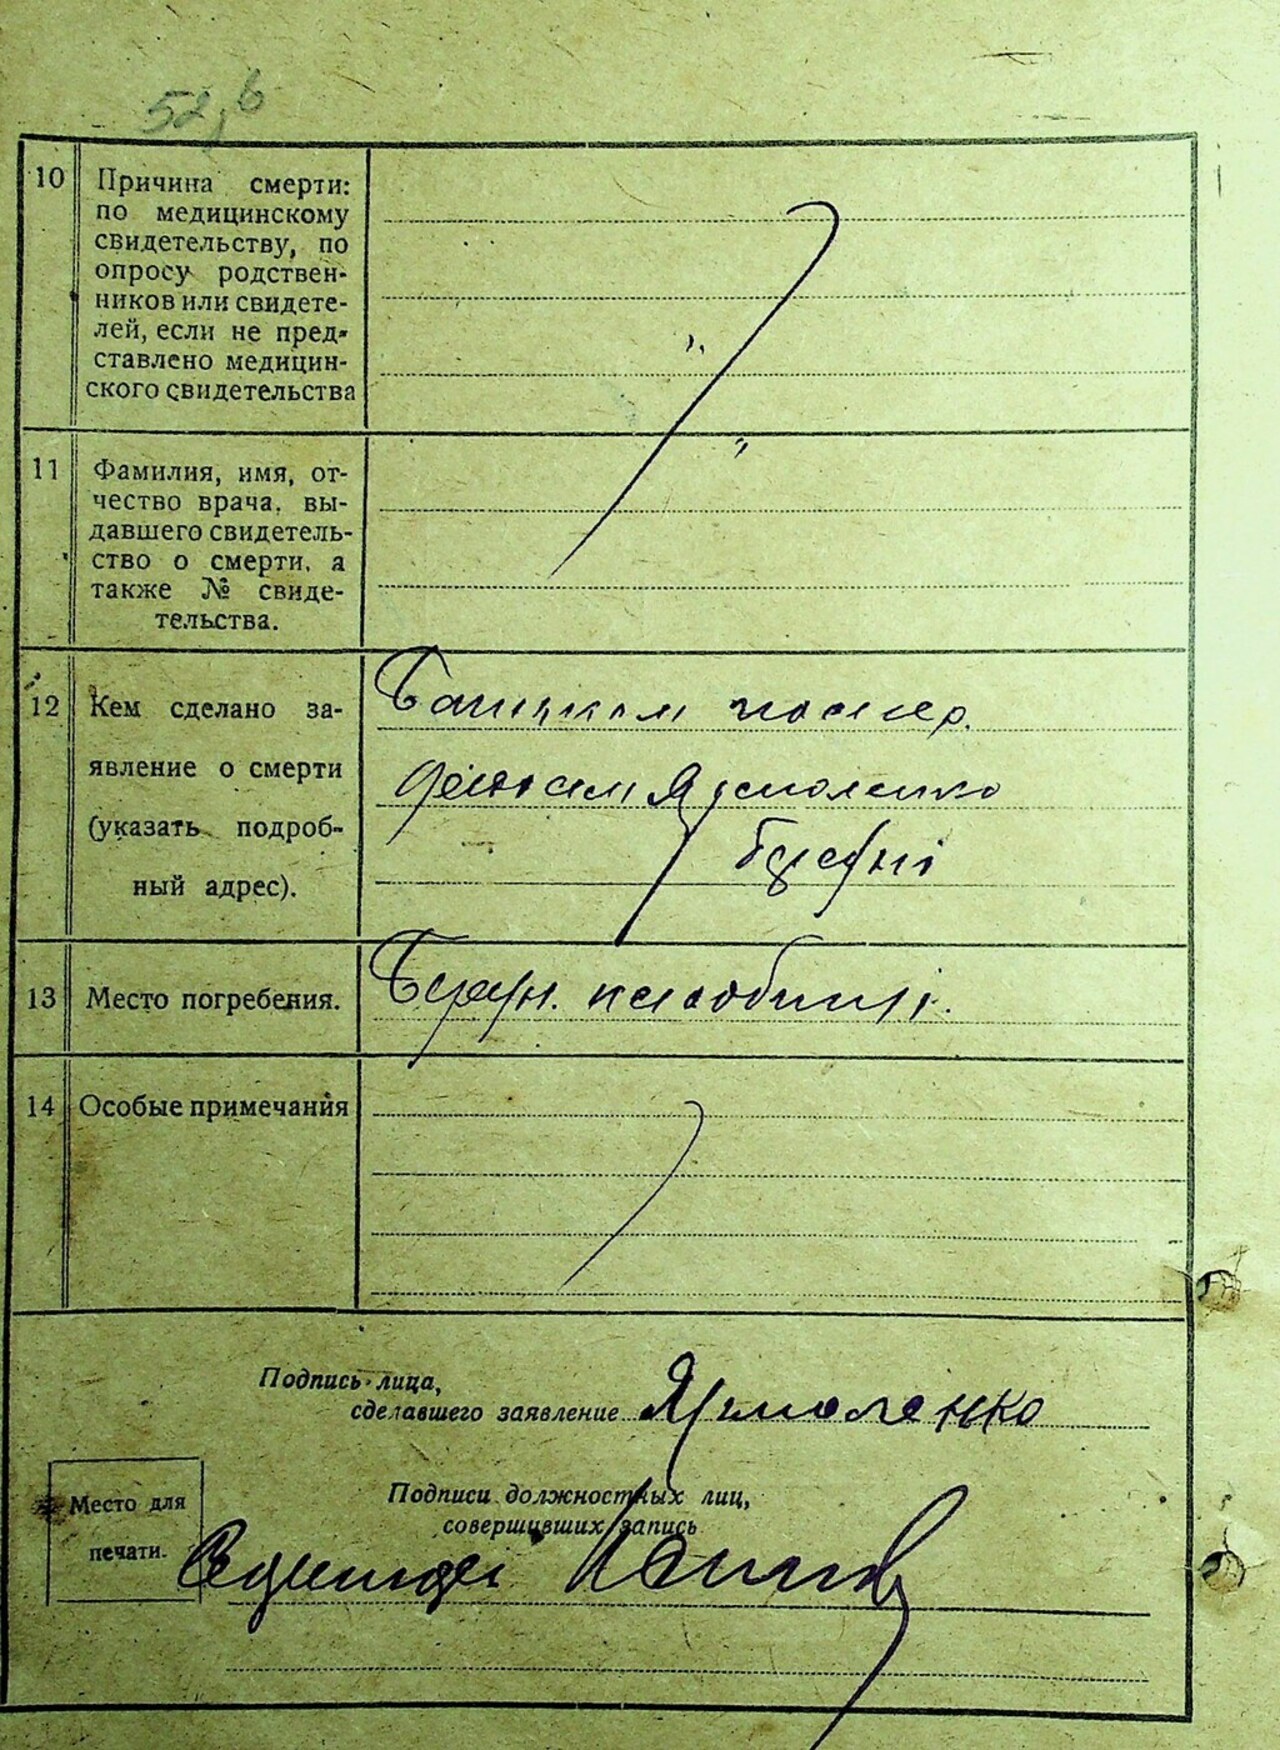 52,6
10 Причина смерти:
по медицинскому
свидетельству, по
опросу родствен-
ников или свидете-
лей, если не пред-
ставлено медицин-
ского свидетельства
11 Фамилия, имя, от-
чество врача, вы-
давшего свидетель-
ство о смерти, а
также № свиде-
тельства.
12 Кем сделано за-
явление о смерти
(указать подроб-
ный адрес).
Батьком
Ярмоленко
13 Место погребения.
14 Особые примечания
Подпись лица,
сделавшего заявление Ярмоленко
Место для
печати.
Подписи должностных лиц,
совершивших запись